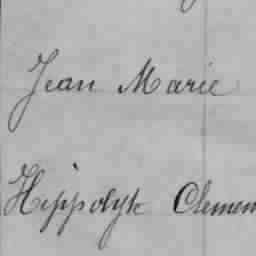 Jean Marie
Hippolyte Clemen